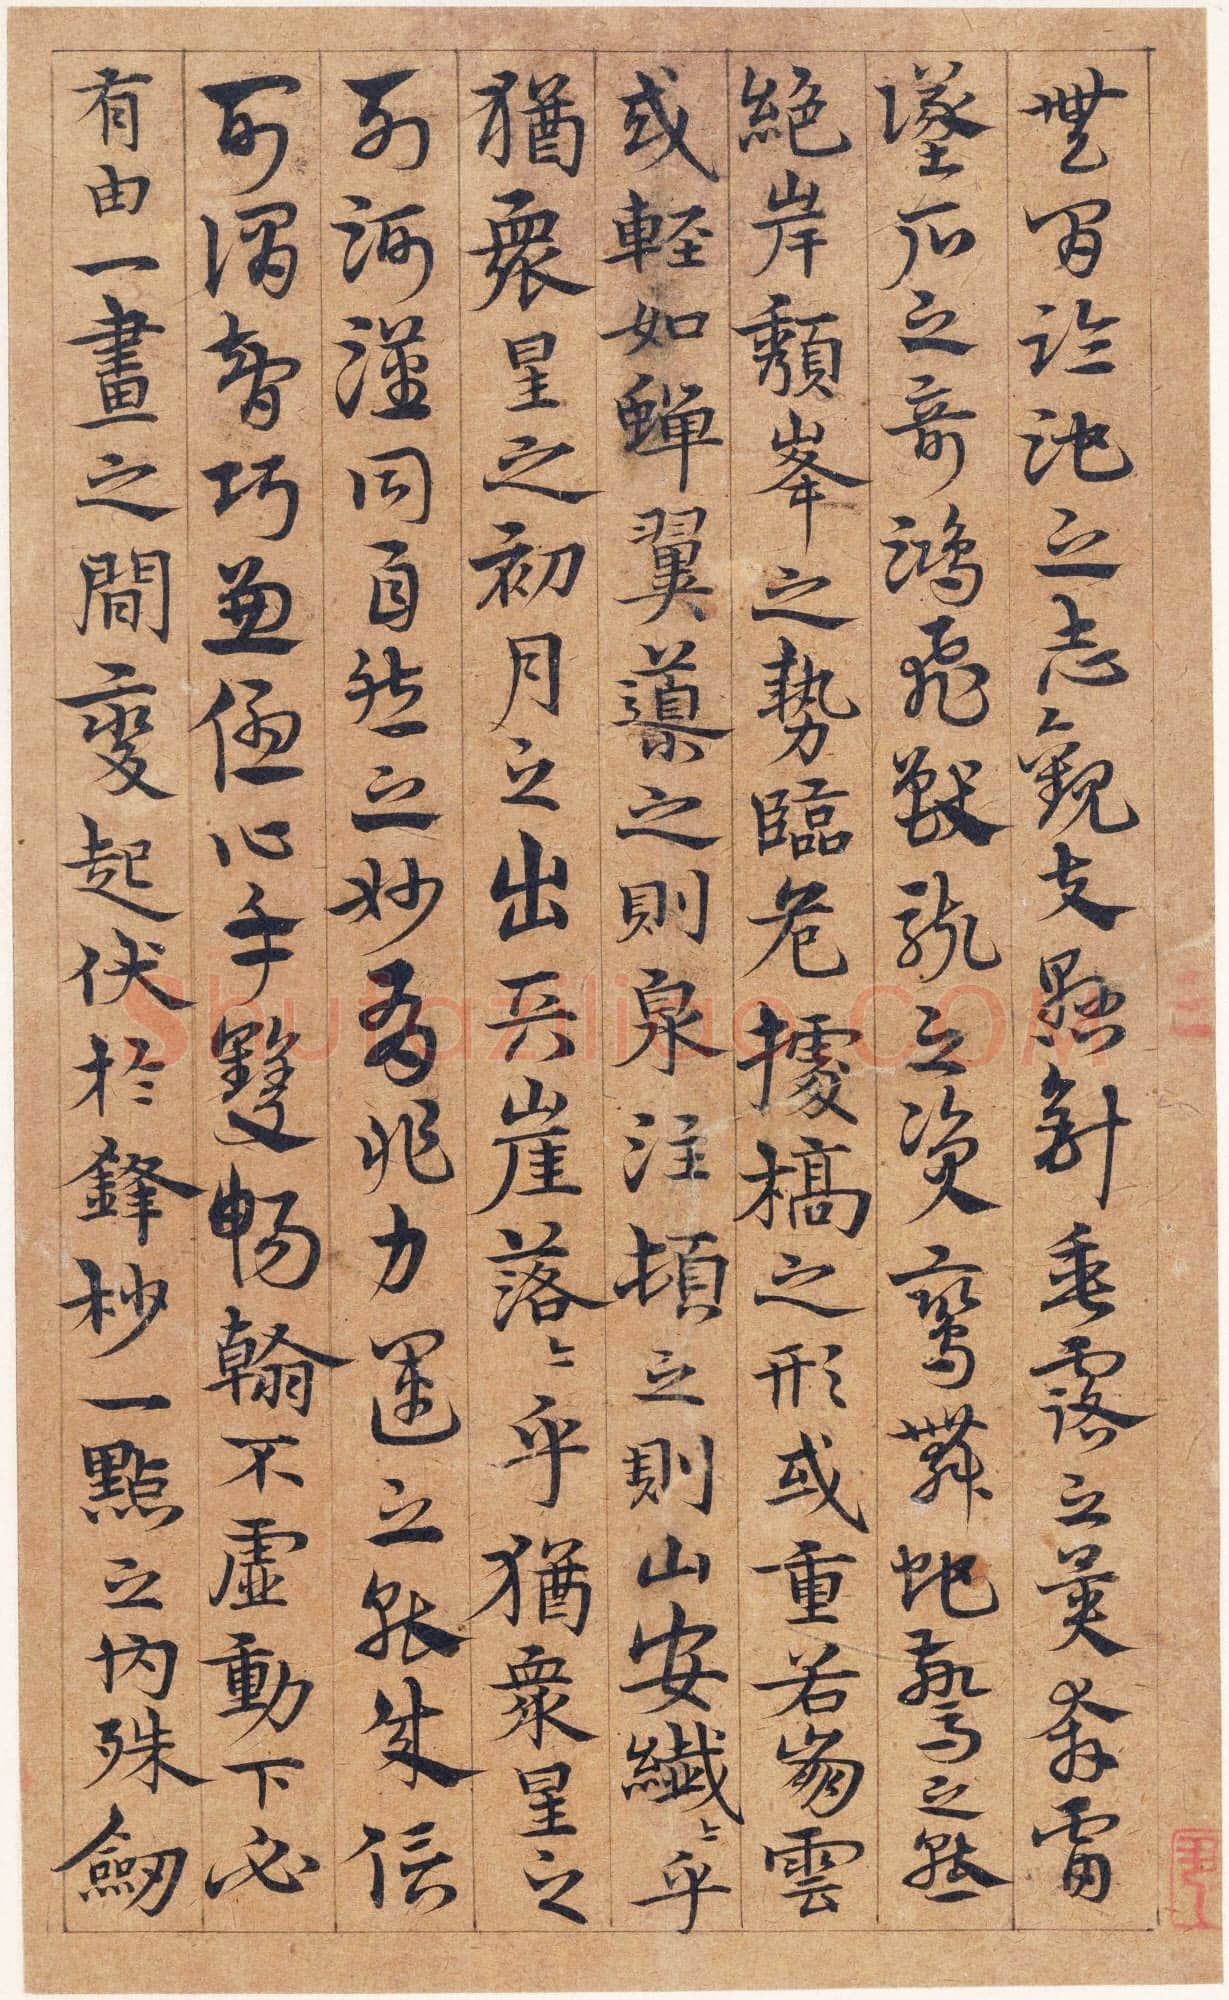 無間臨池之志觀夫懸針垂露之異奔雷
墜石之奇鴻飛獸駭之資鸞舞蛇驚之態
絕岸頹峯之勢臨危據槁之形或重若崩雲
或輕如蟬翼導之則泉注頓之則山安纖〻乎
猶眾星之初月之出天崖落〻乎猶眾星之
列河漢同自然之妙有非力運之能成信
可謂智巧兼優心手雙暢翰不虛動下必
有由一畫之間變起伏於鋒杪一點之內殊衄
Shufaziliao.COM